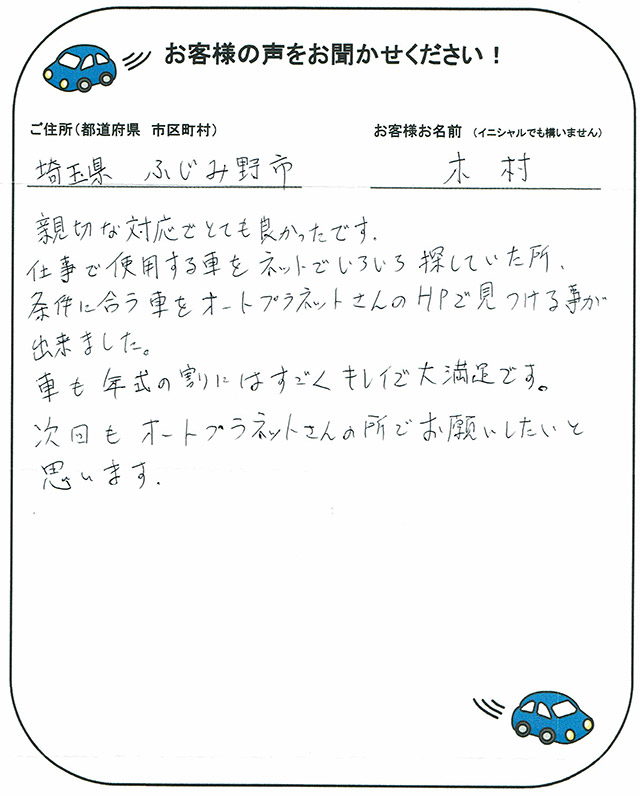 お客様の声をお聞かせください！
ご住所(都道府県 市区町村)
お客様お名前 (イニシャルでも構いません)
埼玉県 ふじみ野市
木村
親切な対応でとても良かったです.
仕事で使用する車をネットでいろいろ探していた所、
条件に合う車をオートプラネットさんのHPで見つける事が
出来ました。
車も年式の割にはすごくキレイで大満足です。
次回もオートプラネットさんの所でお願いしたいと
思います.